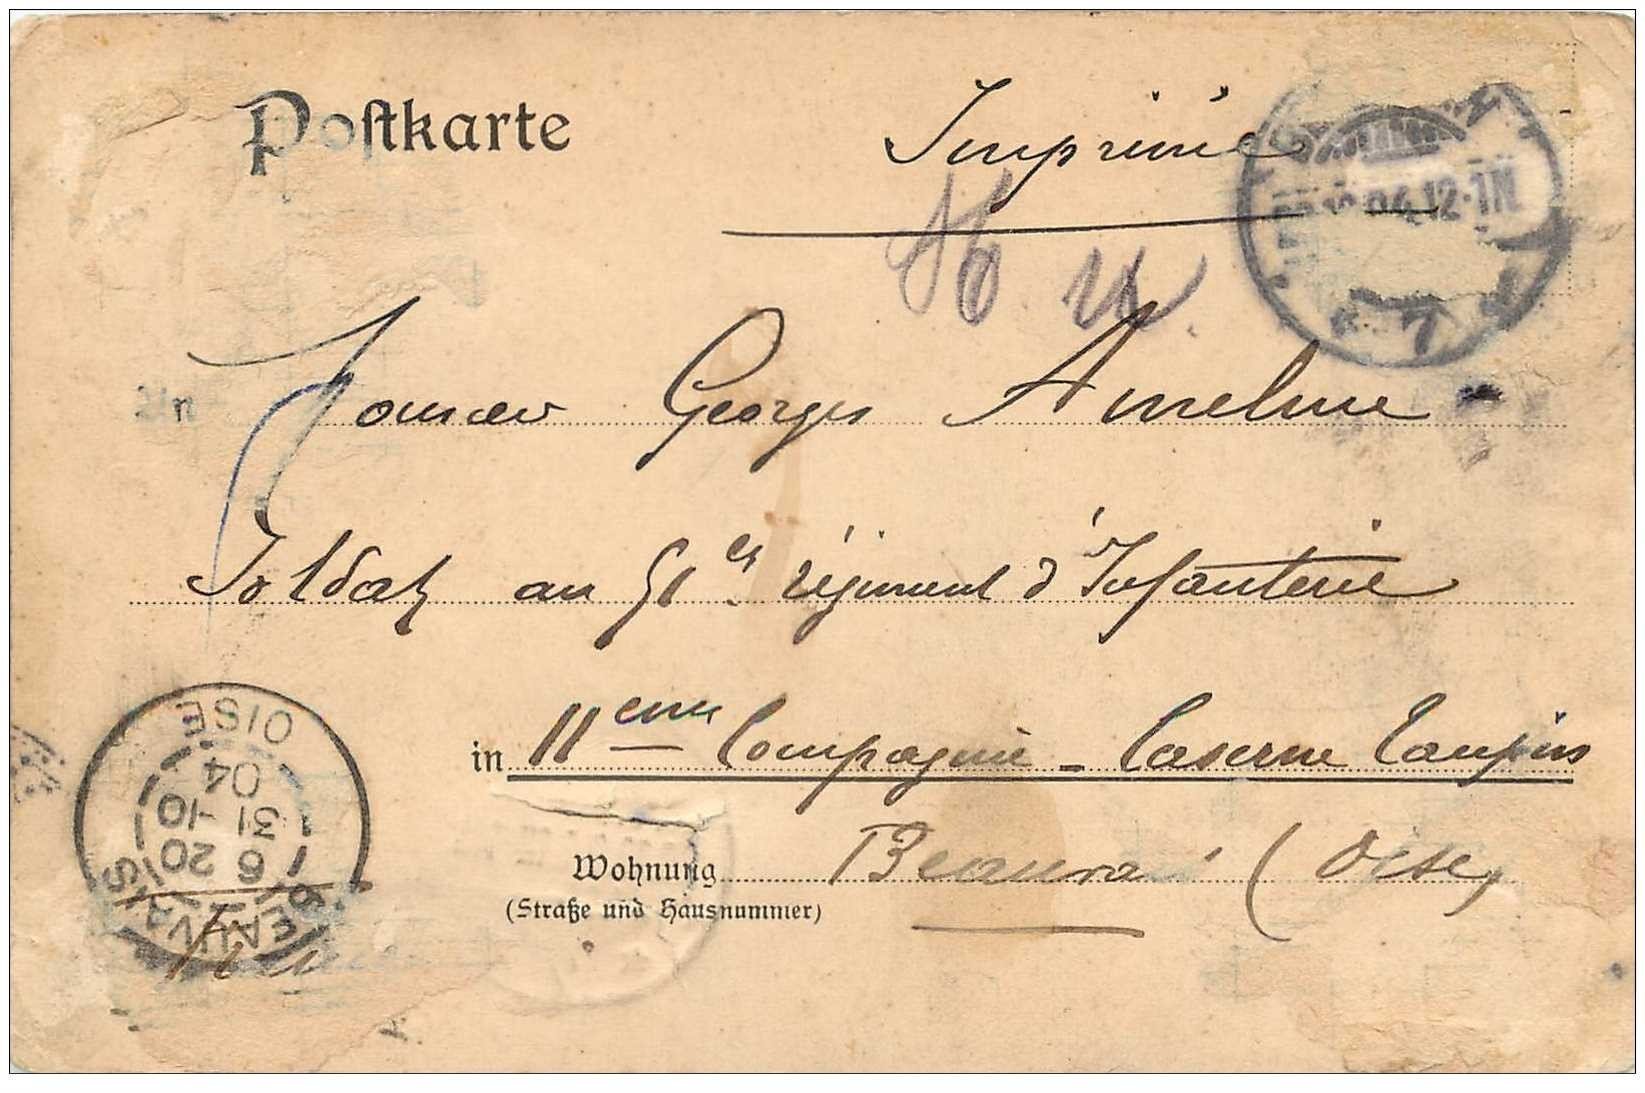 Postkarte
Imprimé
An Georges Anselme
Soldat au 51es régiment d'Infanterie
in 11eme Compagnie - Caserne
Wohnung Beauvais (Oise)
(Straße und Hausnummer)
04.12-1N
7
BEAUVAIS
6 20
31 -10
04
OISE